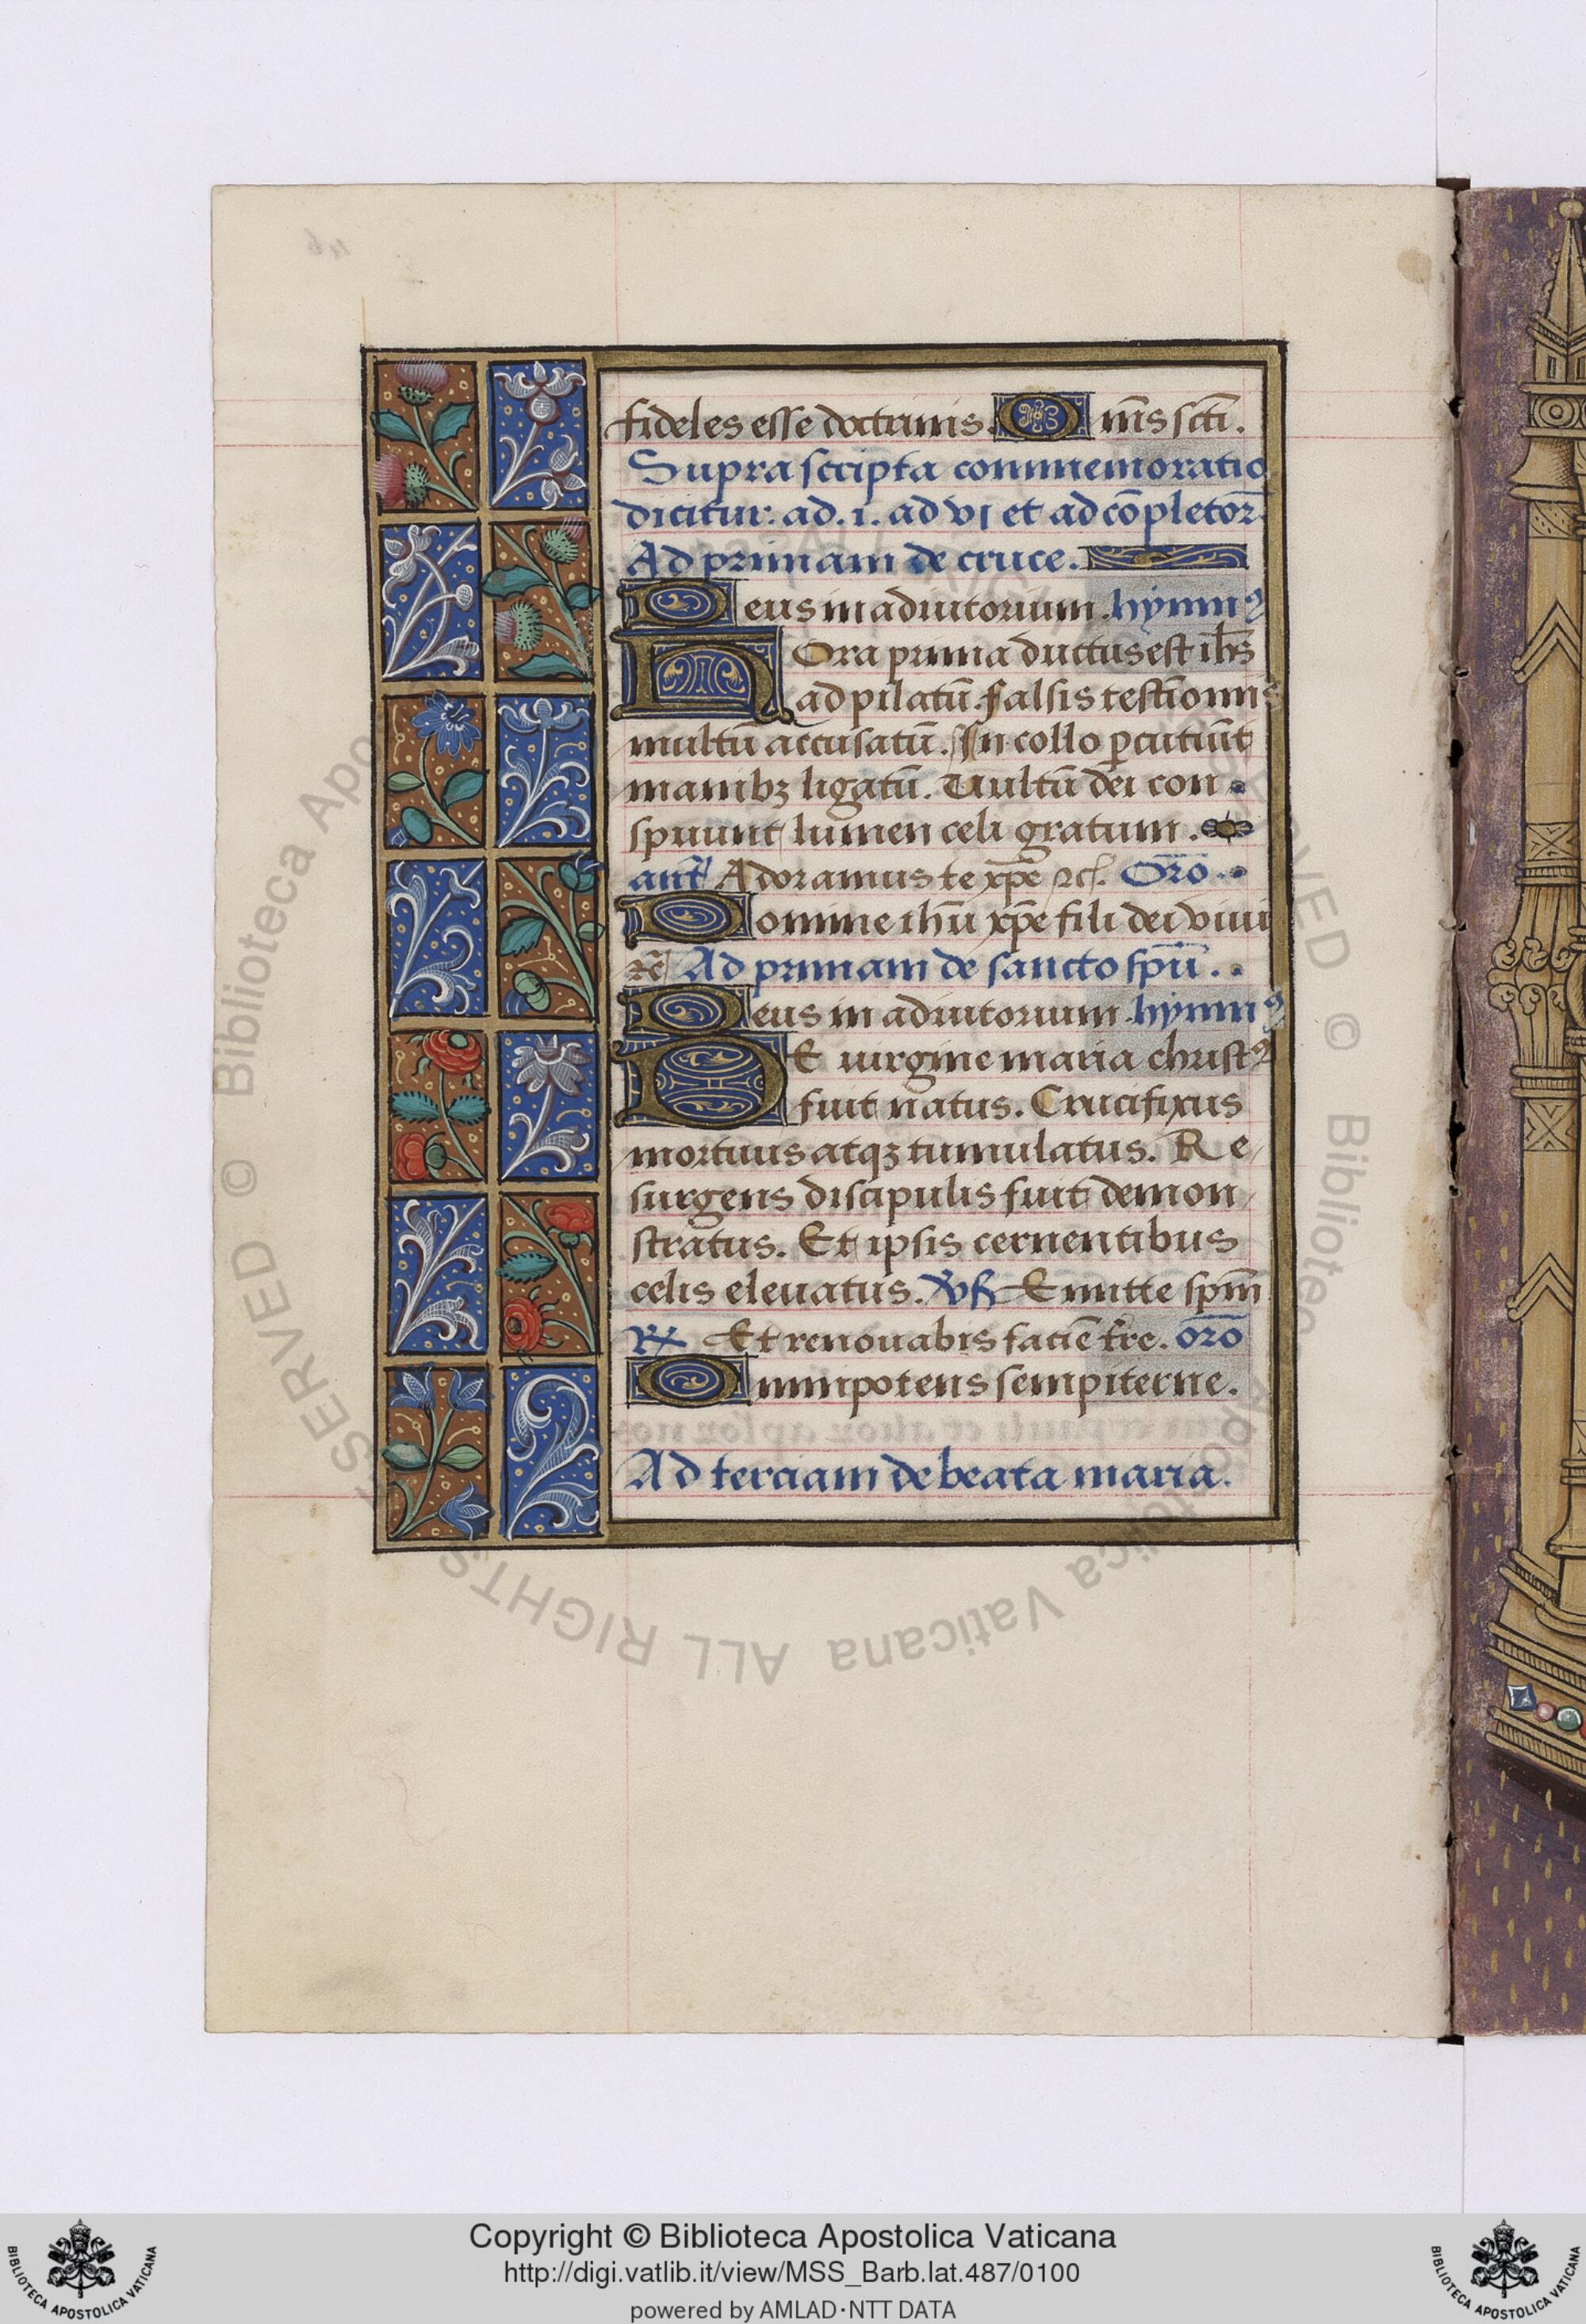 fideles esse doctrinis. Om̄s sc̄ti.
Supra scripta commemoratio
dicitur: ad. i. ad vi et ad cōpletor̄
Ad primam de cruce.
Deus in adiutorium. hymnꝰ
HOra prima ductus est ih̄s
ad pilatū. falsis testīoniis
multū accusatū. In collo ꝑcutiūt
manibꝫ ligatū. Uultū dei con
spuunt lumen celi gratum.
ant̄ Adoramus te xp̄e ⁊c̄. Or̄o
Domine ihū xp̄e fili dei viui
⁊c̄ Ad primam de sancto spū.
Deus in adiutorium. hymnꝰ
DE uirgine maria christꝰ
fuit natus. Crucifixus
mortuus atqꝫ tumulatus. Re
surgens discipulis fuit demon
stratus. Et ipsis cernentibus
celis eleuatus. ℣ Emitte sp̄m
℟ Et renouabis faciē tr̄e. or̄o
Omnipotens sempiterne.
Ad terciam de beata maria.
Copyright © Biblioteca Apostolica Vaticana
http://digi.vatlib.it/view/MSS_Barb.lat.487/0100
powered by AMLAD·NTT DATA
BIBLIOTECA APOSTOLICA VATICANA
BIBLIOTECA APOSTOLICA VATICANA